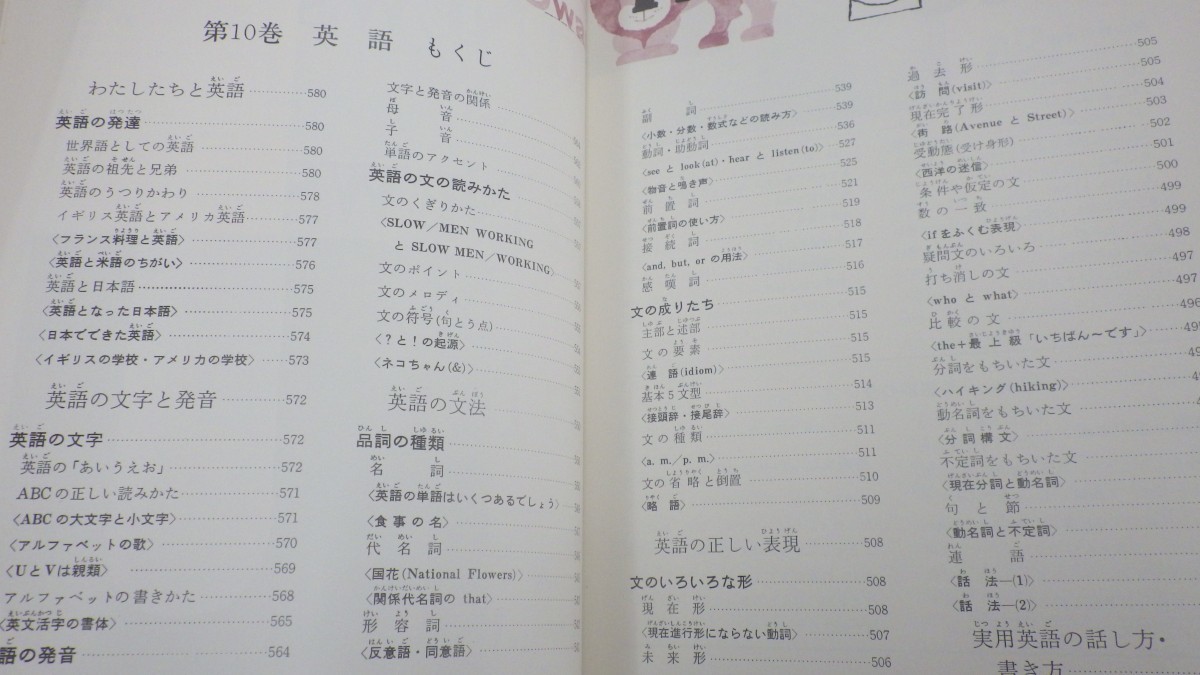 第10巻 英語 もくじ
わたしたちと英語 580
英語の発達 580
世界語としての英語 580
英語の祖先と兄弟 580
英語のうつりかわり 578
イギリス英語とアメリカ英語 577
〈フランス料理と英語〉 577
〈英語と米語のちがい〉 576
英語と日本語 575
〈英語となった日本語〉 575
〈日本でできた英語〉 574
〈イギリスの学校・アメリカの学校〉 573
英語の文字と発音 572
英語の文字 572
英語の「あいうえお」 572
ABCの正しい読みかた 571
〈ABCの大文字と小文字〉 571
〈アルファベットの歌〉 570
〈UとVは親類〉 569
アルファベットの書きかた 568
〈英文活字の書体〉 565
語の発音 564
文字と発音の関係
母音
子音
単語のアクセント
英語の文の読みかた
文のくぎりかた
〈SLOW/MEN WORKING
と SLOW MEN/WORKING〉
文のポイント
文のメロディ
文の符号(句とう点)
〈?と!の起源〉
〈ネコちゃん(&)〉
英語の文法
品詞の種類
名詞
〈英語の単語はいくつあるでしょう〉
〈食事の名〉
代名詞
〈国花(National Flowers)〉
〈関係代名詞の that〉
形容詞
〈反意語・同意語〉
副詞 539
〈小数・分数・数式などの読み方〉 539
動詞・助動詞 536
〈see と look(at)・hear と listen(to)〉 527
〈物音と鳴き声〉 525
前置詞 521
〈前置詞の使い方〉 519
接続詞 518
〈and, but, or の用法〉 517
感嘆詞 516
文の成りたち 515
主部と述部 515
文の要素 515
〈連語(idiom)〉 515
基本5文型 514
〈接頭辞・接尾辞〉 513
文の種類 511
〈a. m./p. m.〉 511
文の省略と倒置 510
〈略語〉 509
英語の正しい表現 508
文のいろいろな形 508
現在形 508
〈現在進行形にならない動詞〉 507
未来形 506
過去形 505
〈訪問(visit)〉 505
現在完了形 504
〈街路(Avenue と Street)〉 503
受動態(受け身形) 502
〈西洋の迷信〉 501
条件や仮定の文 500
数の一致 499
〈ifをふくむ表現〉 499
疑問文のいろいろ 498
打ち消しの文 497
〈who と what〉 497
比較の文 496
〈the+最上級「いちばん~です」〉
分詞をもちいた文
〈ハイキング(hiking)〉
動名詞をもちいた文
〈分詞構文〉
不定詞をもちいた文
〈現在分詞と動名詞〉
句と節
〈動名詞と不定詞〉
連語
〈話法―(1)〉
〈話法―(2)〉
実用英語の話し方・
書き方